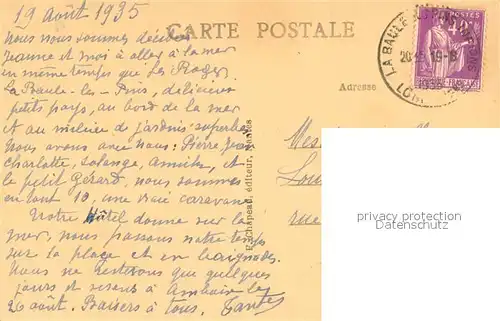 19 août 1935
CARTE POSTALE
Nous nous sommes décidés
Jeanne et moi à aller à la mer
en même temps que les Roger
La Baule-les-Pins, délicieux
petits pays, au bord de la mer
et au milieu de jardins superbes
Nous avons avec nous : Pierre, Jean
Charlotte, Solange, Annik, et
le petit Gérard, nous sommes
en tout 10, une vraie caravane
Notre Hôtel donne sur la
mer, nous passons notre temps
sur la plage et en baignades
Nous ne resterons que quelques
jours et serons à Amboise le
26 août. Baisers à tous. Tante
Adresse
LA BAULE
19-8
1935
POSTES
FRANÇAISE
Chapeau, éditeur, Nantes
Mes
Lou
rue
privacy protection
Datenschutz
protection des données